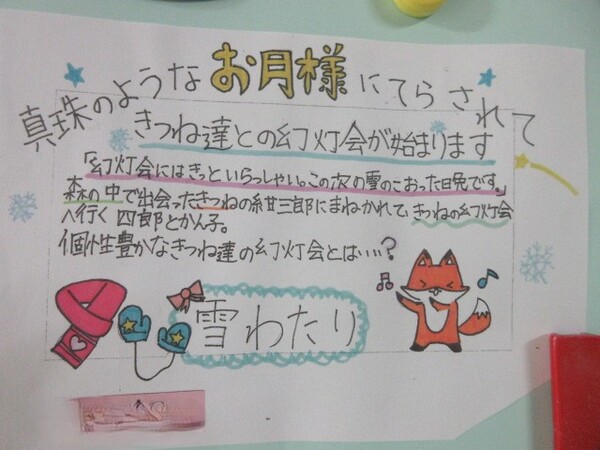 真珠のようなお月様にてらされて
きつね達との幻灯会が始まります
「幻灯会にはきっといらっしゃい。この次の雪のこおった月晩です。」
森の中で出会ったきつねの紺三郎にまねかれて、きつねの幻灯会
へ行く四郎とかん子。
個性豊かなきつね達の幻灯会とは…?
雪わたり